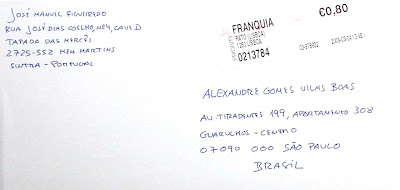 JOSÉ MANUEL FIGUEIREDO
RUA JOSÉ DIAS COELHO, Nº4, CAVE D
TAPADA DAS MERCÊS
2725-552 MEM MARTINS
SINTRA - PORTUGAL
FRANQUIA
€0,80
RATO (LISBOA)
1250 LISBOA
0213784
ALEXANDRE GOMES VILAS BOAS
AV. TIRADENTES 199, APARTAMENTO 308
GUARULHOS - CENTRO
07090 000 SÃO PAULO
BRASIL